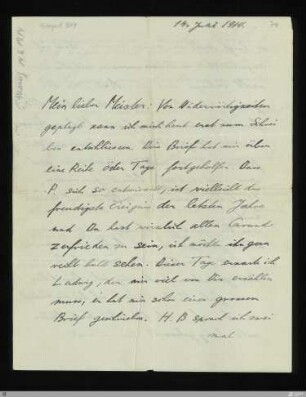 14. Juli 1914.
Mein lieber Meister: Von Widerwärtigkeiten
geplagt kann ich mich heut erst zum Schrei-
ben entschliessen. Dein Brief hat mir über
eine Reihe öder Tage fortgeholfen. Dass
P. sich so entwickelt, ist vielleicht das
freudigste Ereignis der letzten Jahre
und Du hast wirklich allen Grund
zufrieden zu sein, ich möchte ihn gern
recht bald sehen. Dieser Tage erwarte ich
Ludwig, der mir viel von Dir erzählen
muss, er hat mir schon einen grossen
Brief geschrieben. H. B sprach ich zwei
mal